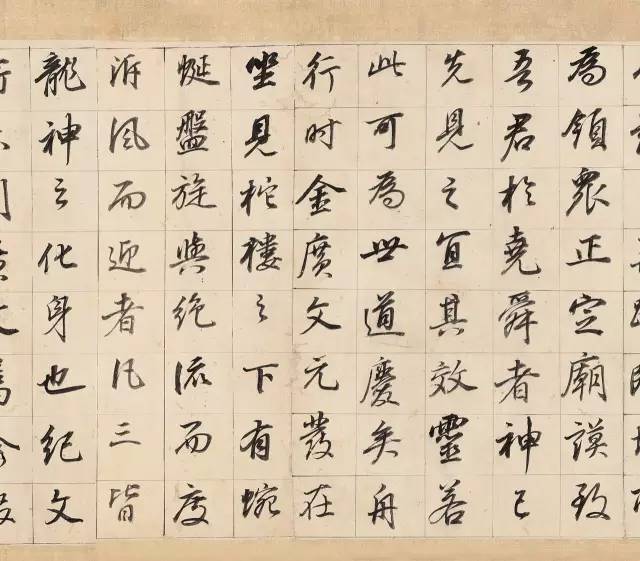 為領衆正定廟謨致
吾君於堯舜者神已
先見之宜其效靈若
此可為世道慶矣舟
行时金廣文元發在
坐見柁樓之下有蜿
蜒盤旋與絶流而度
泝風而迎者凡三皆
龍神之化身也紀文